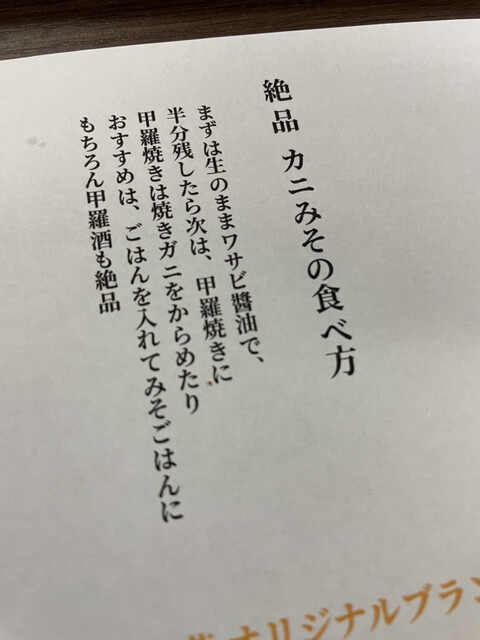 絶品 カニみその食べ方
まずは生のままワサビ醬油で、
半分残したら次は、甲羅焼きに
甲羅焼きは焼きガニをからめたり
おすすめは、ごはんを入れてみそごはんに
もちろん甲羅酒も絶品
オリジナルブラン